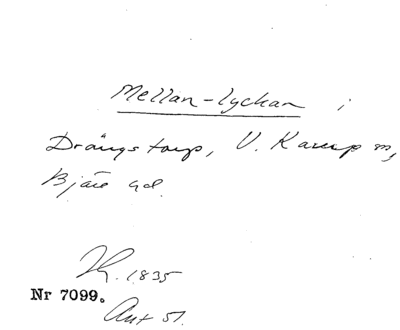 Mellan-lyckan i
Drängstorp, V. Karup sn,
Bjäre hd.
Lk. 1835
Nr 7099.
Ant 51.